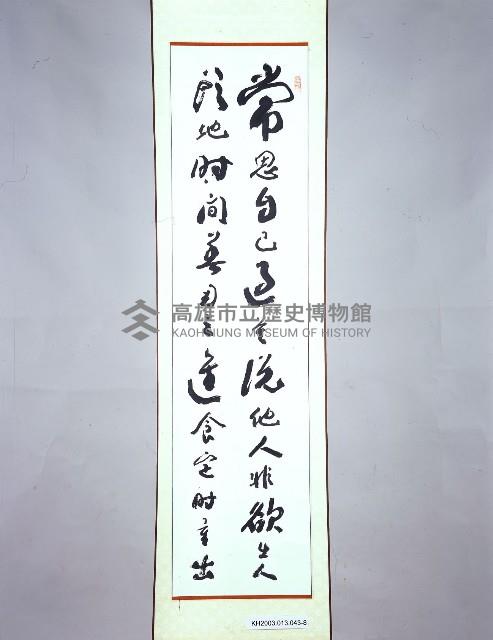 常思自己過莫說他人非欲生人
於地時間善用之進食定時辛出
高雄市立歷史博物館
KAOHSIUNG MUSEUM OF HISTORY
KH2003.013.043-8